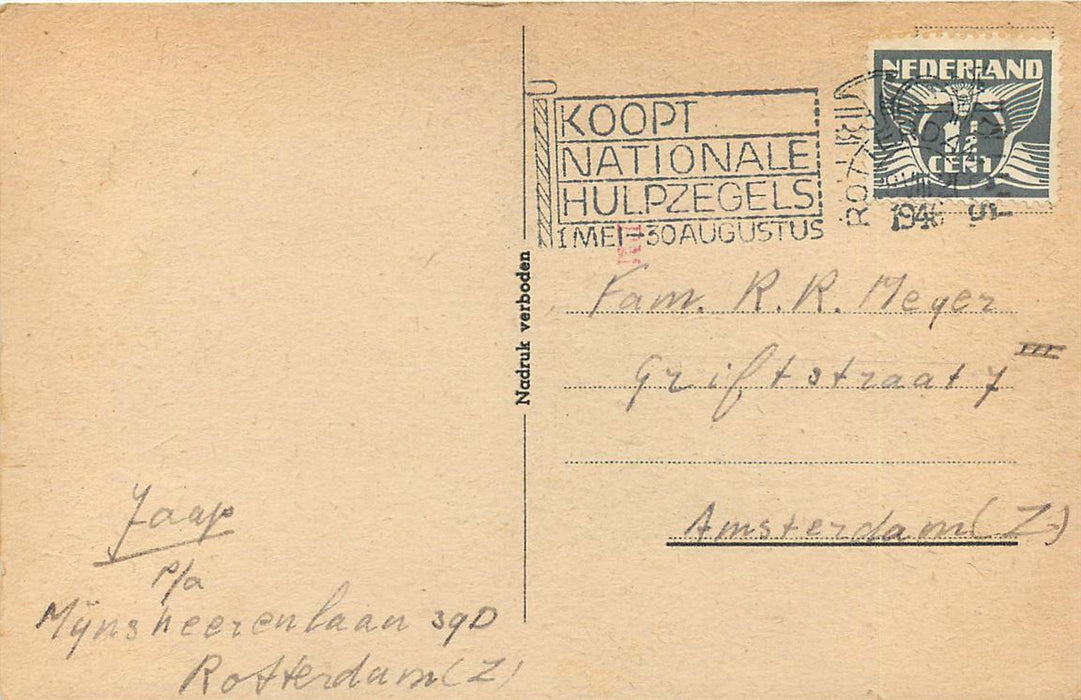 NEDERLAND
1½
CENT
KOOPT
NATIONALE
HULPZEGELS
1 MEI-30 AUGUSTUS
ROTTERDAM
1946
Nadruk verboden
Fam. R. R. Meyer
Griftstraat 7 III
Amsterdam (Z)
Jaap
p/a
Mijnsheerenlaan 39D
Rotterdam (Z)